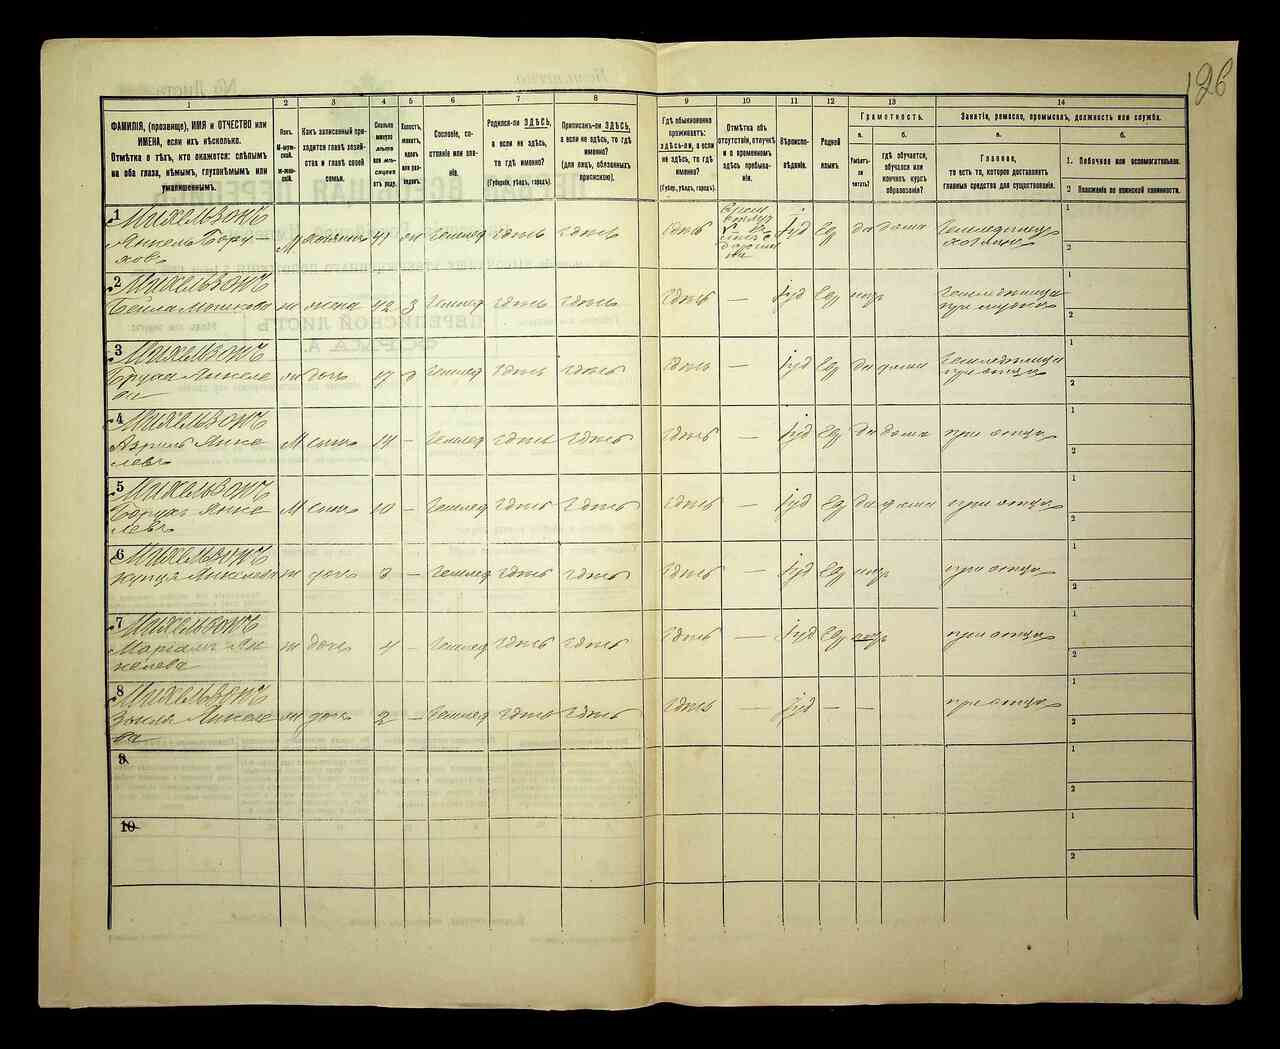 126
1
2
3
4
5
6
7
8
9
10
11
12
13
14
ФАМИЛІЯ, (прозвище), ИМЯ и ОТЧЕСТВО или
ИМЕНА, если ихъ нѣсколько.
Отмѣтка о тѣхъ, кто окажется: слѣпымъ
на оба глаза, нѣмымъ, глухонѣмымъ или
умалишеннымъ.
Полъ.
М-муж-
ской.
Ж-жен-
скій.
Какъ записанный при-
ходится главѣ хозяй-
ства и главѣ своей
семьи.
Сколько
минуло
лѣтъ
или мѣ-
сяцевъ
отъ роду.
Холостъ,
женатъ,
вдовъ
или раз-
веденъ.
Сословіе, со-
стояніе или зва-
ніе.
Родился-ли ЗДѢСЬ,
а если не здѣсь,
то гдѣ именно?
(Губернія, уѣздъ, городъ).
Приписанъ-ли ЗДѢСЬ,
а если не здѣсь, то гдѣ
именно?
(для лицъ, обязанныхъ
припискою).
Гдѣ обыкновенно
проживаетъ:
здѣсь-ли, а если
не здѣсь, то гдѣ
именно?
(Губер., уѣздъ, городъ).
Отмѣтка объ
отсутствіи, отлучкѣ
и о временномъ
здѣсь пребыва-
ніи.
Вѣроиспо-
вѣданіе.
Родной
языкъ.
Грамотность.
а.
Умѣетъ-
ли
читать?
б.
гдѣ обучается,
обучался или
кончилъ курсъ
образованія?
Занятіе, ремесло, промыселъ, должность или служба.
а.
Главное,
то есть то, которое доставляетъ
главныя средства для существованія.
б.
1. Побочное или вспомогательное.
2 Положеніе по воинской повинности.
1 Михельзонъ
Янкель Бору-
ховъ
М хозяинъ 41 жн Землед здѣсь здѣсь здѣсь
Іуд Евр да дома Земледѣлец
1
2
2 Михельзонъ
Бейла Мошкова
ж жена 42 з Землед здѣсь здѣсь здѣсь — Іуд Евр нѣтъ Земледѣлица
при мужѣ
1
2
3 Михельзонъ
Янкеле
ва
ж дочь 17 д Землед здѣсь здѣсь здѣсь — Іуд Евр да дома Земледѣлица
при отцѣ
1
2
4 Михельзонъ
Янке
левъ
М сынъ 14 — Землед здѣсь здѣсь здѣсь — Іуд Евр да дома при отцѣ
1
2
5 Михельзонъ
Борухъ Янке
левъ
М сынъ 10 — Землед здѣсь здѣсь здѣсь — Іуд Евр да дома при отцѣ
1
2
6 Михельзонъ
Янкелева
ж дочь — Землед здѣсь здѣсь здѣсь — Іуд Евр нѣтъ при отцѣ
1
2
7 Михельзонъ
Маріамъ Ян
келева
ж дочь 4 — Землед здѣсь здѣсь здѣсь — Іуд Евр нѣтъ при отцѣ
1
2
8 Михельзонъ
Янкеле
ва
ж дочь 2 — Землед здѣсь здѣсь здѣсь — Іуд — — при отцѣ
1
2
9
1
2
10
1
2